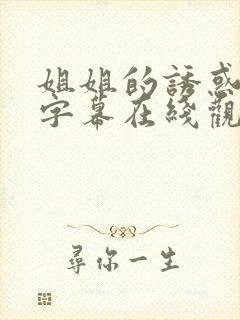 姐姐的誘惑
字幕在綫觀
尋你一生